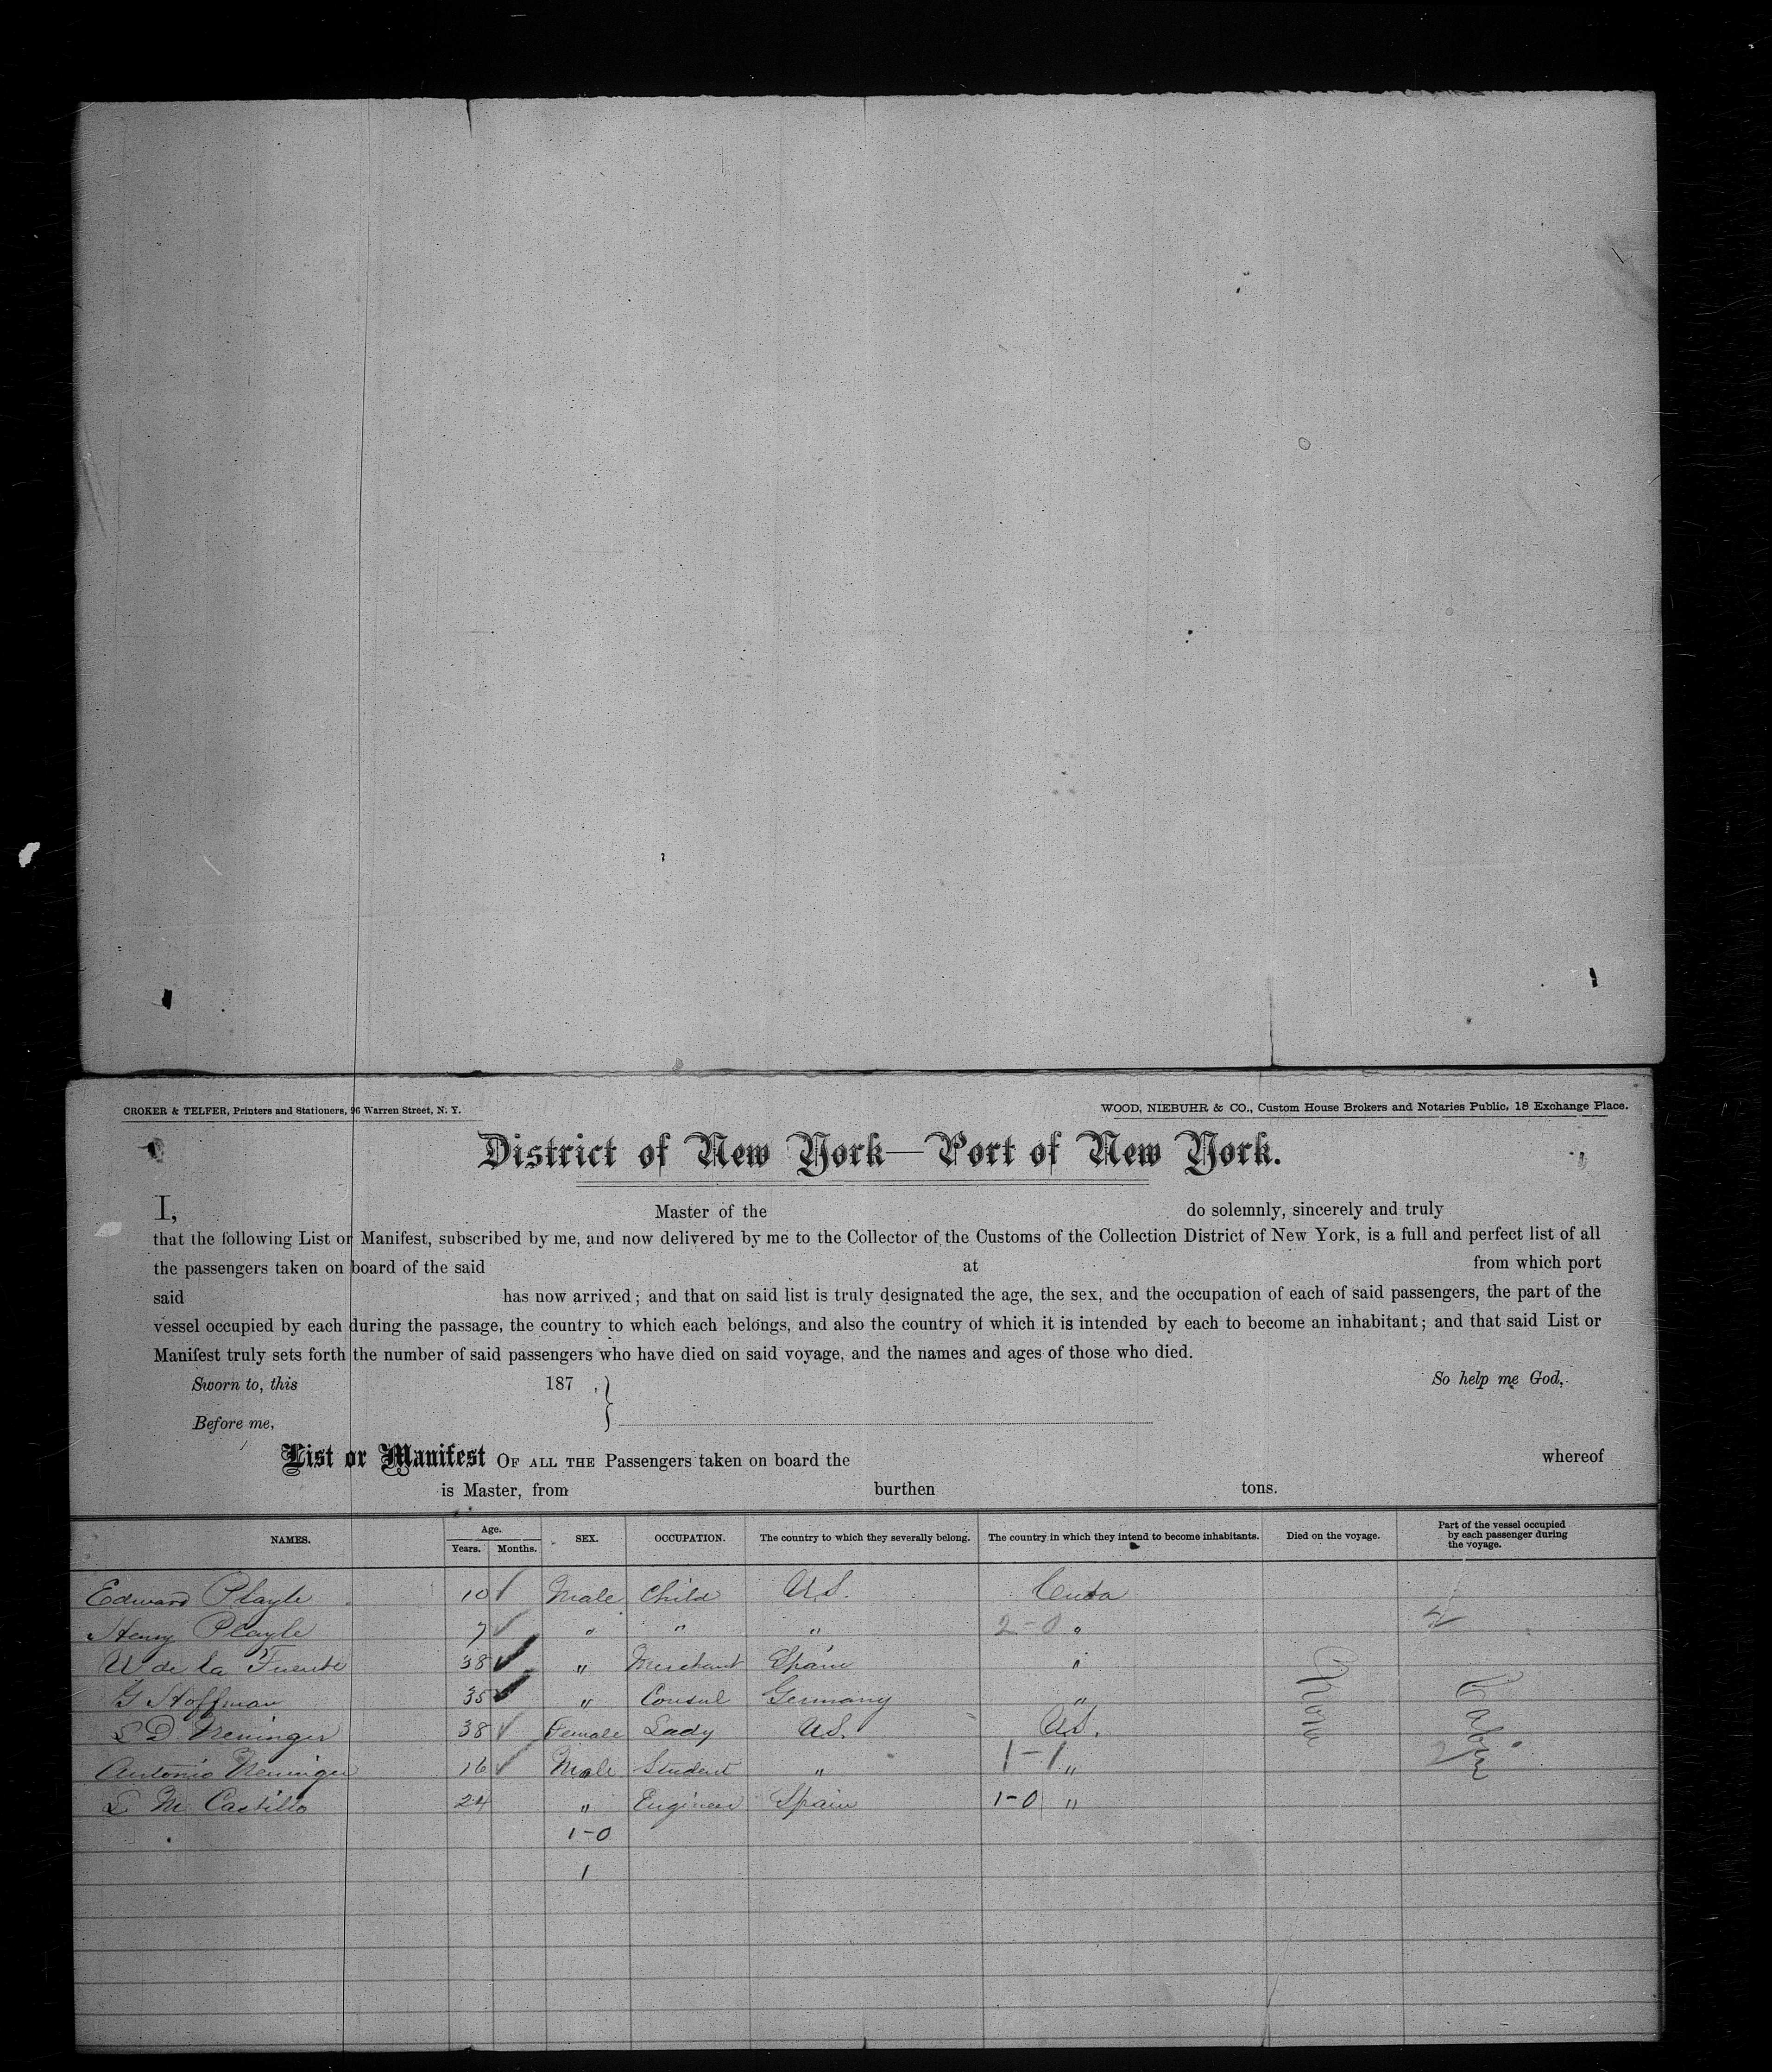 CROKER & TELFER, Printers and Stationers, 96 Warren Street, N. Y. WOOD, NIEBUHR & CO., Custom House Brokers and Notaries Public, 18 Exchange Place.
District of New York—Port of New York.
I, Master of the do solemnly, sincerely and truly
that the following List or Manifest, subscribed by me, and now delivered by me to the Collector of the Customs of the Collection District of New York, is a full and perfect list of all
the passengers taken on board of the said at from which port
said has now arrived; and that on said list is truly designated the age, the sex, and the occupation of each of said passengers, the part of the
vessel occupied by each during the passage, the country to which each belongs, and also the country of which it is intended by each to become an inhabitant; and that said List or
Manifest truly sets forth the number of said passengers who have died on said voyage, and the names and ages of those who died.
Sworn to, this 187 , So help me God,
Before me,
List or Manifest OF ALL THE Passengers taken on board the whereof
is Master, from burthen tons.
NAMES. Age. Years. Months. SEX. OCCUPATION. The country to which they severally belong. The country in which they intend to become inhabitants. Died on the voyage. Part of the vessel occupied by each passenger during the voyage.
Edward Playle 10 Male Child U.S. Cuba
Henry Playle 7 " " " 2-0 "
U de la Fuente 38 " Merchant Spain "
G Hoffman 35 " Consul Germany "
L D Neninger 38 Female Lady U.S. U.S.
Antonio Neninger 16 Male Student " 1-1 "
L M Castillo 24 " Engineer Spain 1-0 "
1-0
1
None
Cabin